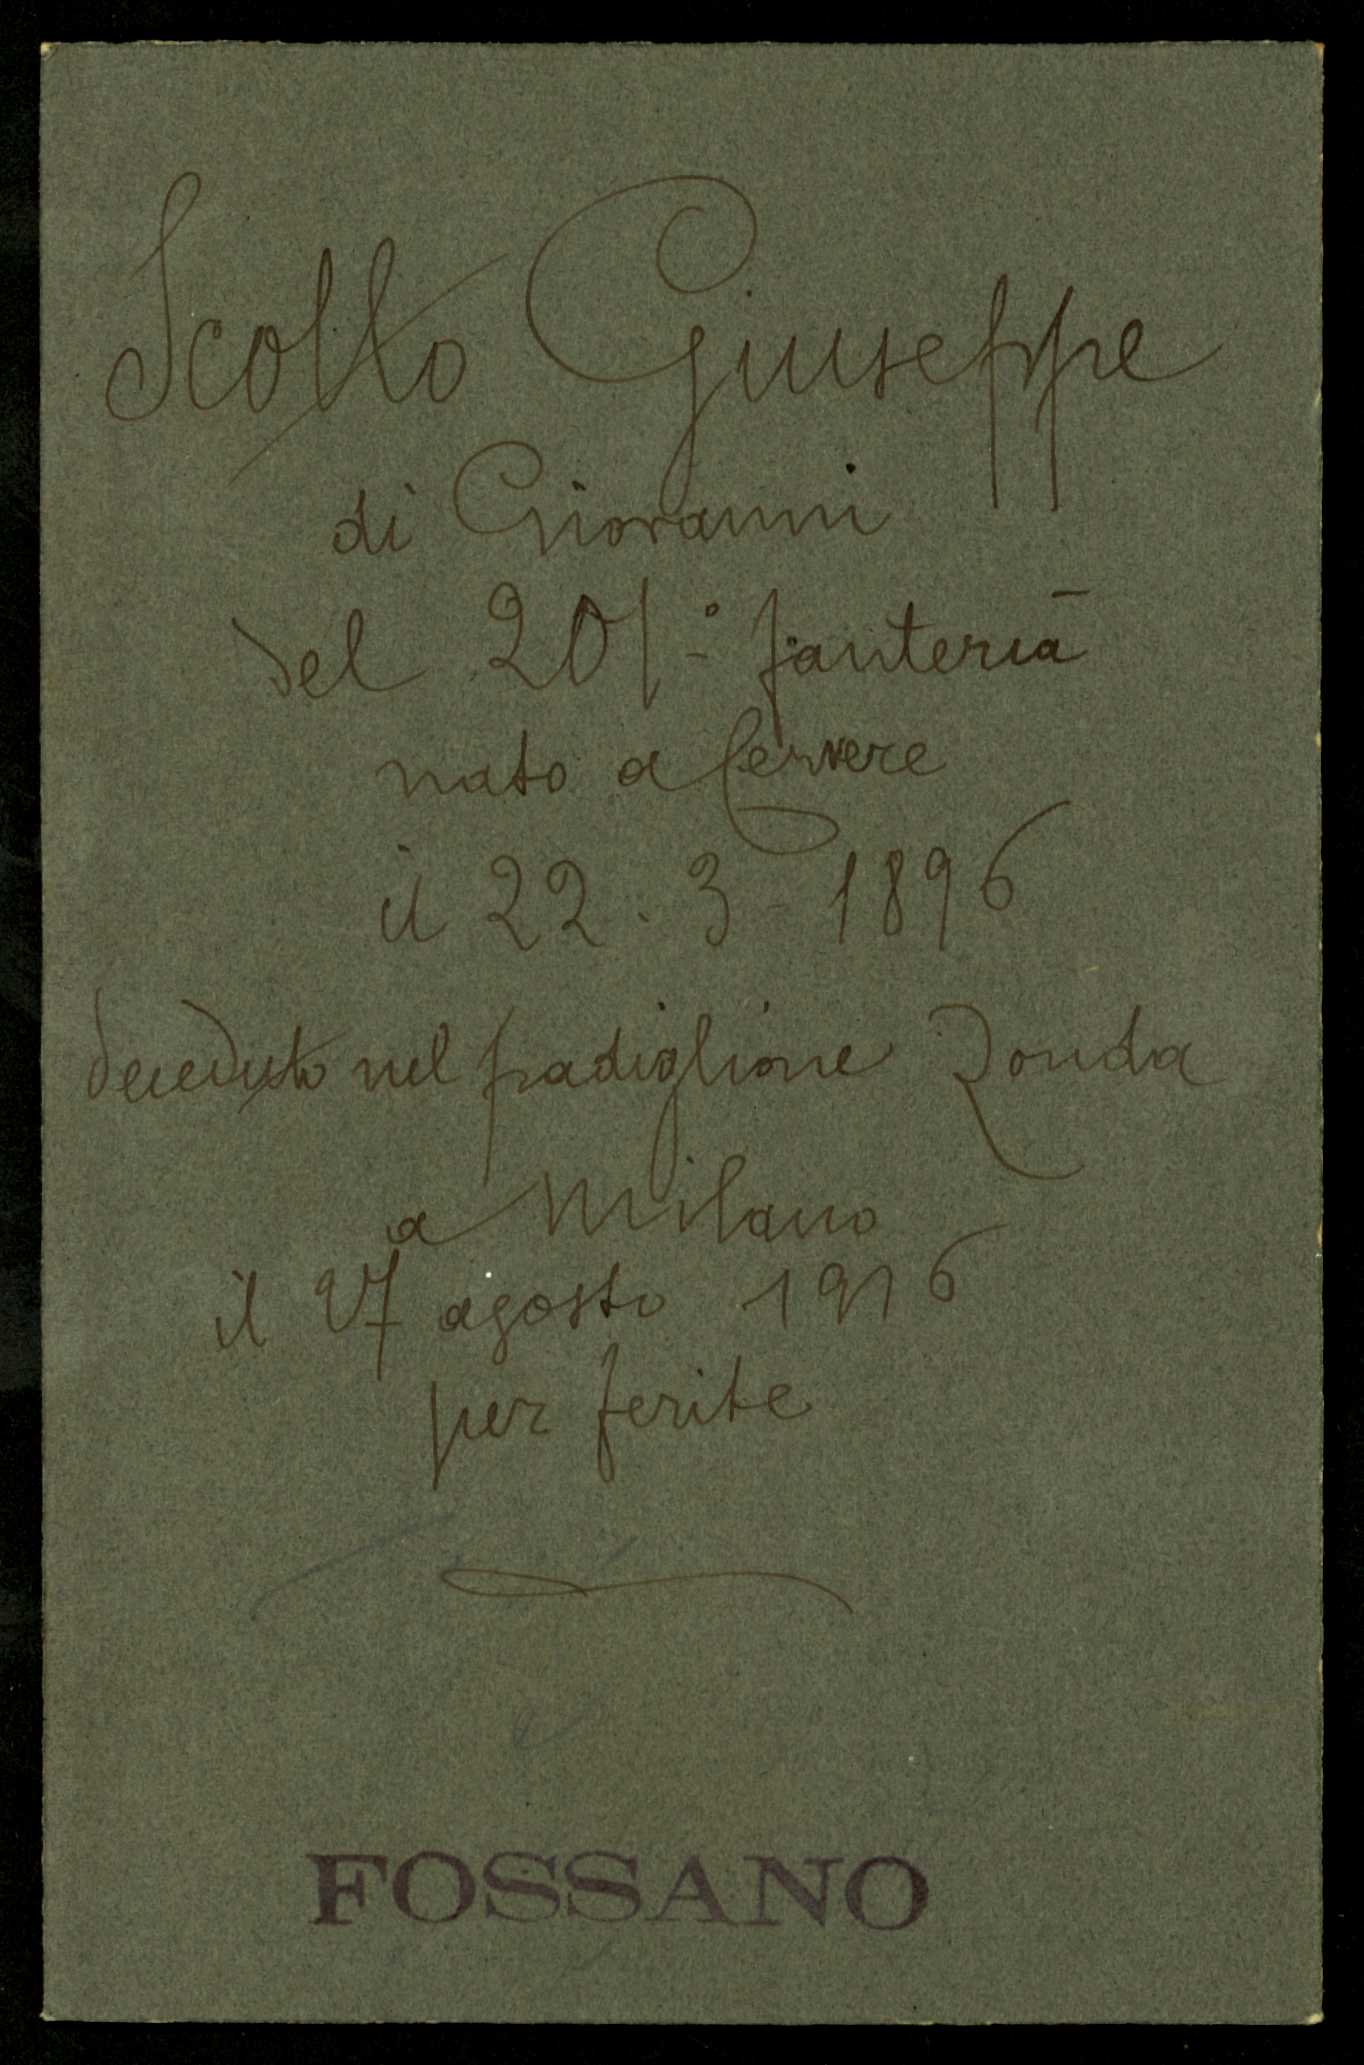 Scotto Giuseppe
di Giovanni
del 201.° fanteria
nato a Cervere
il 22 . 3 - 1896
deceduto nel padiglione Zonda
a Milano
il 27 agosto 1916
per ferite
FOSSANO